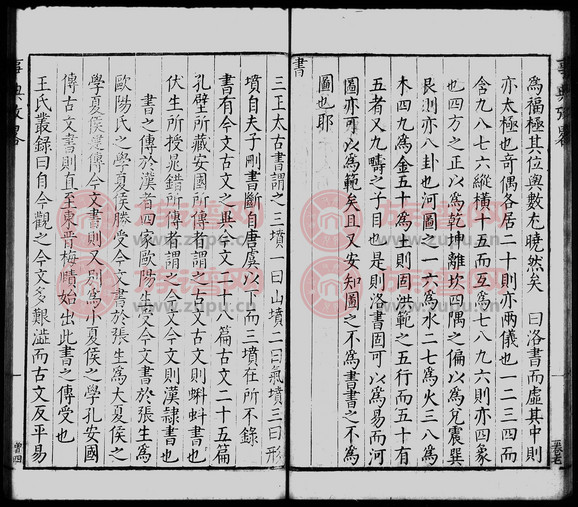 為福極其位與數尤曉然矣　曰洛書而虛其中則
亦太極也奇偶各居二十則亦兩儀也一二三四而
含九八七六縱橫十五而互為七八九六則亦四象
也四方之正以為乾坤離坎四隅之偏以為兌震巽
艮則亦八卦也河圖之一六為水二七為火三八為
木四九為金五十為土則固洪範之五行而五十有
五者又九疇之子目也是則洛書固可以為易而河
圖亦可以為範矣且又安知圖之不為書書之不為
圖也耶
書
三正太古書謂之三墳一曰山墳二曰氣墳三曰形
墳自夫子刪書斷自唐虞以下而三墳在所不錄
書有今文古文之異今文二十八篇古文二十五篇
孔壁所藏安國所傳者謂之古文古文則蝌蚪書也
伏生所授晁錯所傳者謂之今文今文則漢隸書也
書之傳於漢者四家歐陽生受今文書於張生為
歐陽氏之學夏侯勝受今文書於張生為大夏侯之
學夏侯建傳今文書則又別為小夏侯之學孔安國
傳古文書則直至東晉梅賾始出此書之傳受也
王氏叢錄曰自今觀之今文多艱澁而古文反平易
事典攷畧
族譜网
www.zupu.cn